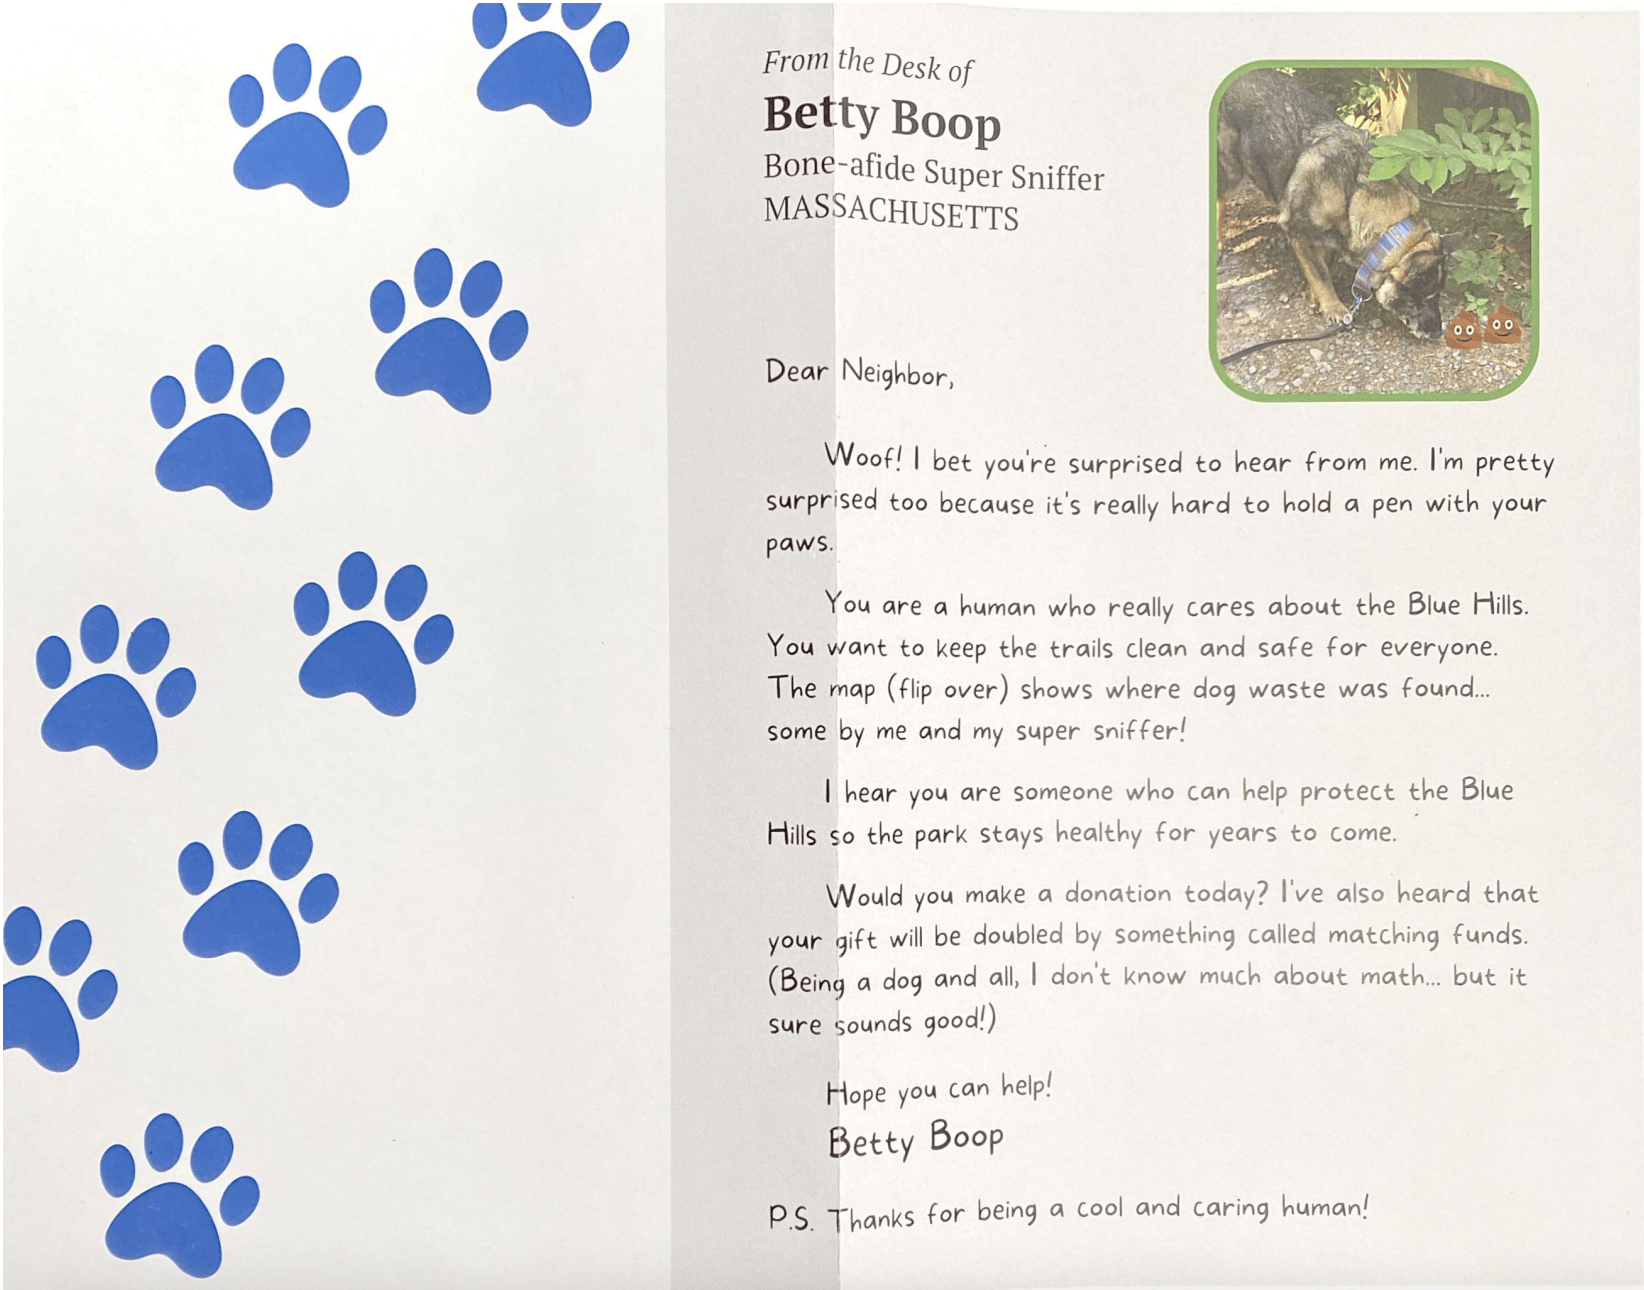 From the Desk of
Betty Boop
Bone-afide Super Sniffer
MASSACHUSETTS
Dear Neighbor,
Woof! I bet you're surprised to hear from me. I'm pretty
surprised too because it's really hard to hold a pen with your
paws.
You are a human who really cares about the Blue Hills.
You want to keep the trails clean and safe for everyone.
The map (flip over) shows where dog waste was found...
some by me and my super sniffer!
I hear you are someone who can help protect the Blue
Hills so the park stays healthy for years to come.
Would you make a donation today? I've also heard that
your gift will be doubled by something called matching funds.
(Being a dog and all, I don't know much about math... but it
sure sounds good!)
Hope you can help!
Betty Boop
P.S. Thanks for being a cool and caring human!